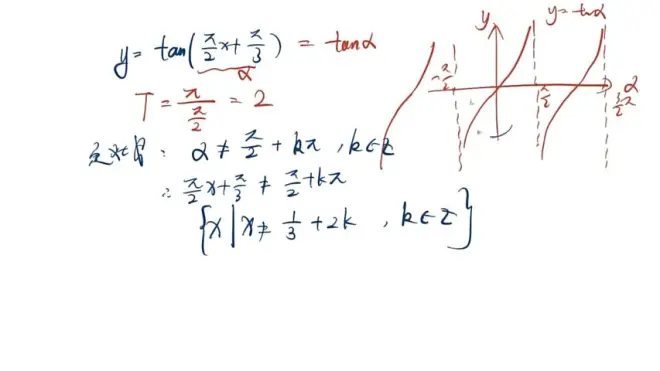 y = tan(π/2 x + π/3) = tanα
α
T = π/(π/2) = 2
定义域: α ≠ π/2 + kπ, k∈Z
∴ π/2 x + π/3 ≠ π/2 + kπ
{x | x ≠ 1/3 + 2k, k∈Z}
y
y = tanα
-π/2
π/2
3/2 π
α